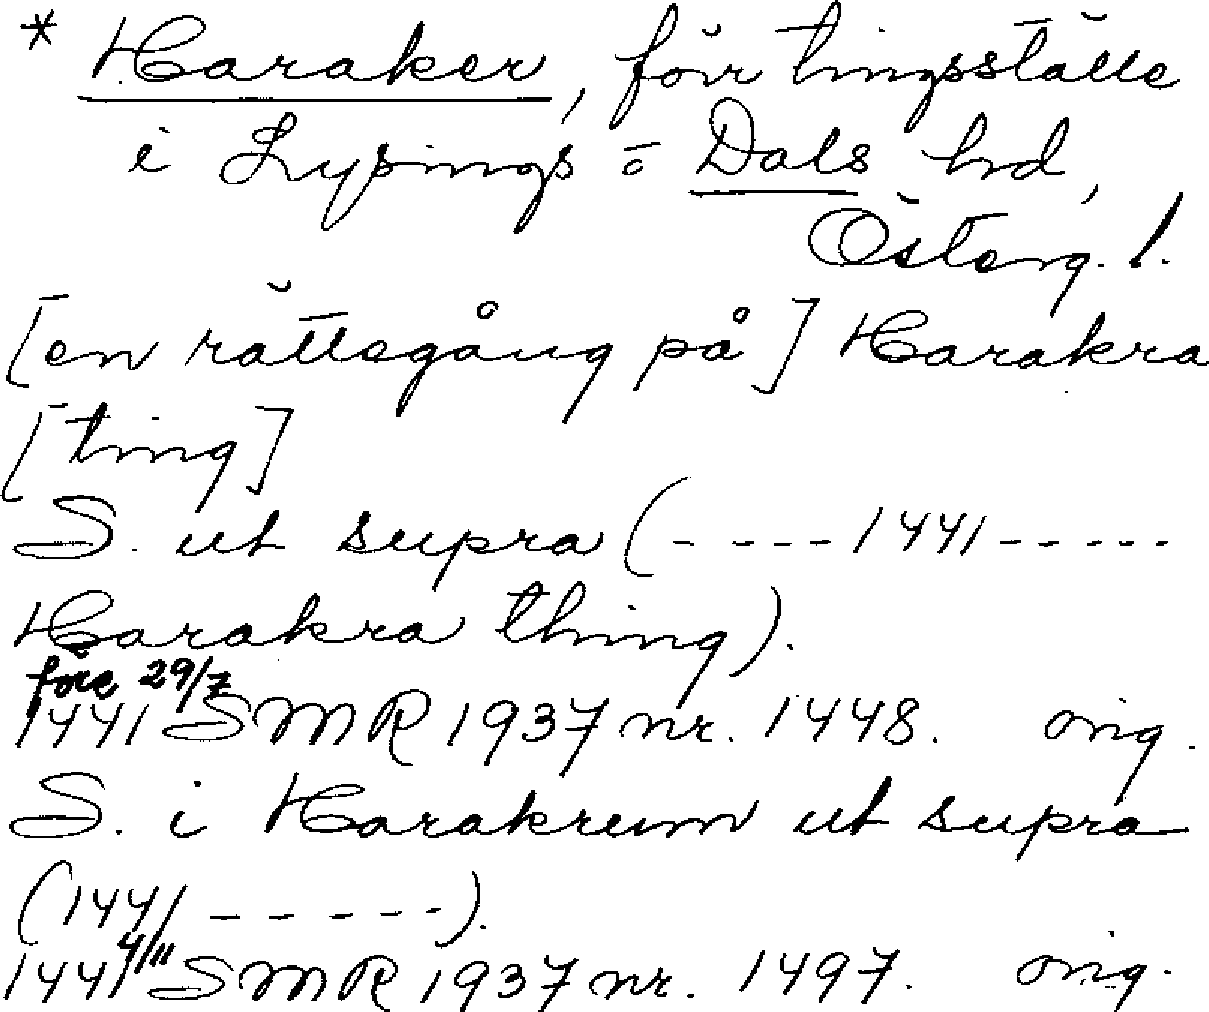 * Haraker, förr tingsställe
i Lysings o Dals hd,
Österg. l.
[en rättegång på] Harakra
[ting]
S. ut supra (----1441-----
Harakra thing).
före 29/7
1441 SMR 1937 nr. 1448. orig.
S. i Harakrum ut supra
(1441 -----).
1441 4/11 SMR 1937 nr. 1497. orig.